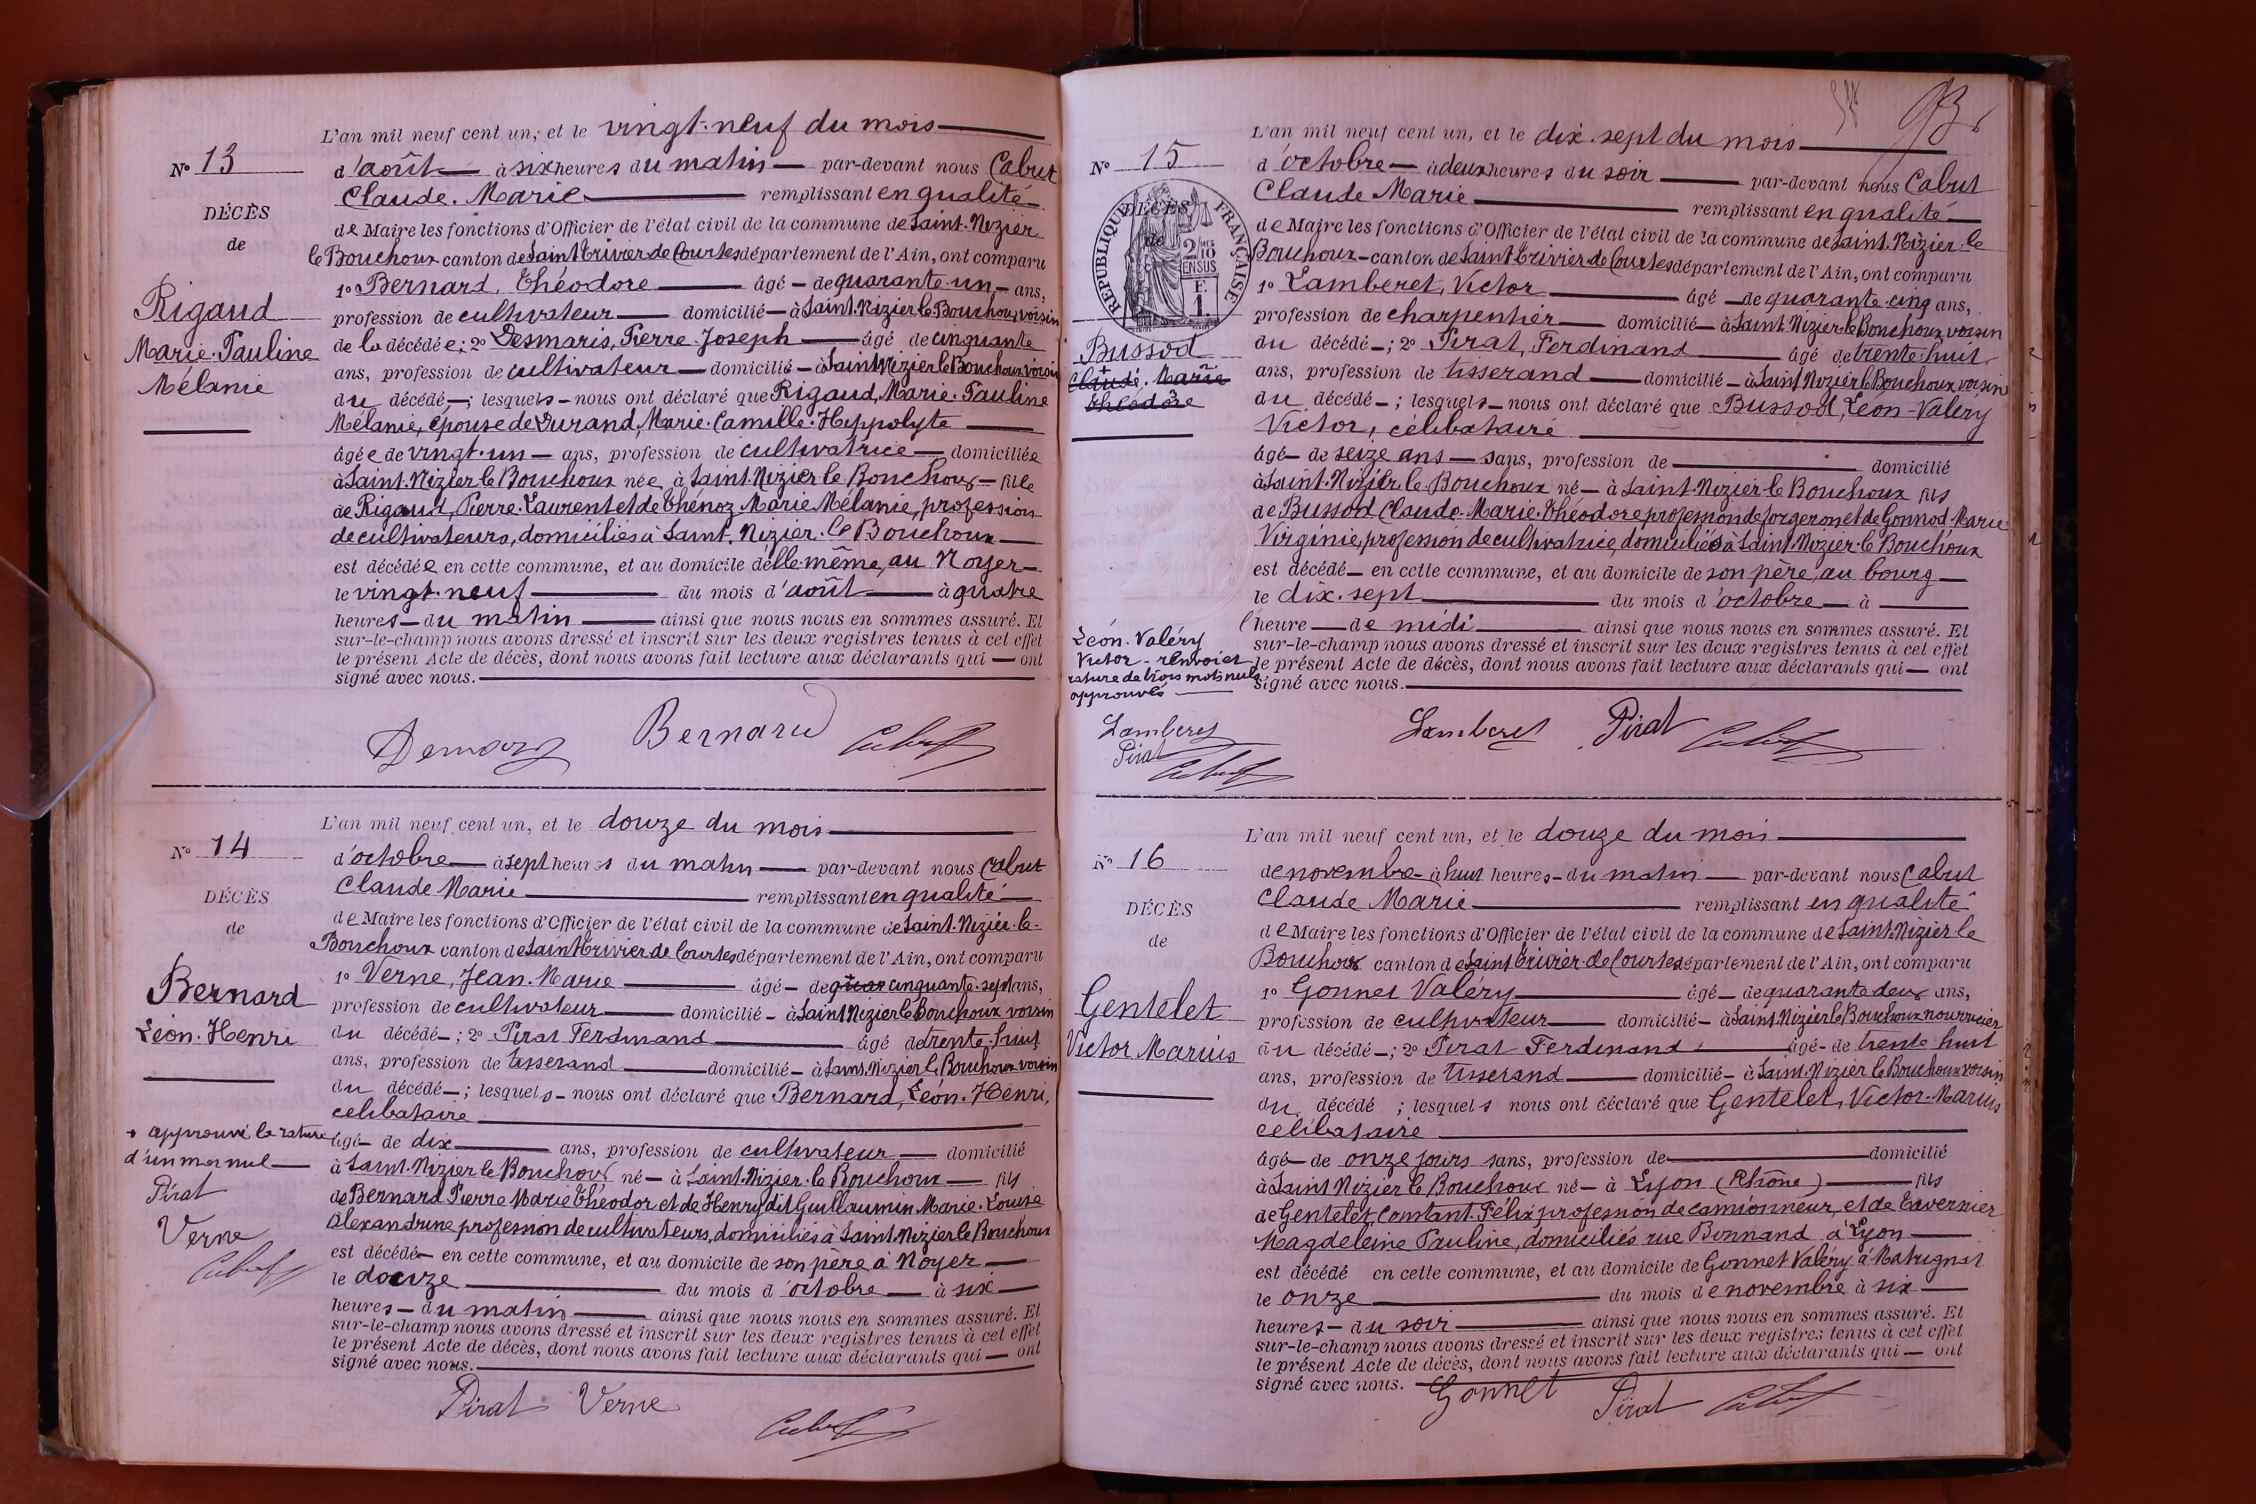 L'an mil neuf cent un, et le vingt-neuf du mois
N° 13
d'août à six heures du matin par-devant nous Cabut
Claude-Marie remplissant en qualité
DÉCÈS
de Maire les fonctions d'Officier de l'état civil de la commune de Saint-Nizier
de
le Bouchoux canton de Saint Trivier de Courtes département de l'Ain, ont comparu
1° Bernard, Théodore âgé de quarante-un ans,
Rigaud
profession de cultivateur domicilié à Saint-Nizier le Bouchoux, voisin
Marie-Pauline
de la décédée; 2° Desmaris, Pierre-Joseph âgé de cinquante
Mélanie
ans, profession de cultivateur domicilié à Saint Nizier le Bouchoux voisin
du décédé; lesquels nous ont déclaré que Rigaud, Marie-Pauline
Mélanie, épouse de Durand, Marie-Camille-Hippolyte
âgée de vingt-un ans, profession de cultivatrice domiciliée
à Saint-Nizier le Bouchoux née à Saint-Nizier le Bouchoux fille
de Rigaud, Pierre-Laurent et de Thénoz Marie Mélanie, profession
de cultivateurs, domiciliés à Saint-Nizier-le Bouchoux
est décédée en cette commune, et au domicile d'elle-même, au Noyer
le vingt-neuf du mois d'août à quatre
heures du matin ainsi que nous nous en sommes assuré. Et
sur-le-champ nous avons dressé et inscrit sur les deux registres tenus à cet effet
le présent Acte de décès, dont nous avons fait lecture aux déclarants qui ont
signé avec nous.
Bernard Cabut
L'an mil neuf cent un, et le douze du mois
N° 14
d'octobre à sept heures du matin par-devant nous Cabut
Claude Marie remplissant en qualité
DÉCÈS
de Maire les fonctions d'Officier de l'état civil de la commune de Saint-Nizier-le-
de
Bouchoux canton de Saint Trivier de Courtes département de l'Ain, ont comparu
1° Verne, Jean-Marie âgé de quar cinquante-sept ans,
Bernard
profession de cultivateur domicilié à Saint Nizier le Bouchoux voisin
Léon-Henri
du décédé; 2° Pirat Ferdinand âgé de trente-huit
ans, profession de tisserand domicilié à Saint-Nizier le Bouchoux voisin
du décédé; lesquels nous ont déclaré que Bernard, Léon-Henri,
célibataire
+ approuvé la rature
d'un mot nul
Pirat
Verne
Cabut
âgé de dix ans, profession de cultivateur domicilié
à Saint-Nizier le Bouchoux né à Saint-Nizier-le Bouchoux fils
de Bernard Pierre Marie Théodor et de Henry dit Guillaumin Marie-Louise
Alexandrine profession de cultivateurs, domiciliés à Saint Nizier le Bouchoux
est décédé en cette commune, et au domicile de son père à Noyer
le douze du mois d'octobre à six
heures du matin ainsi que nous nous en sommes assuré. Et
sur-le-champ nous avons dressé et inscrit sur les deux registres tenus à cet effet
le présent Acte de décès, dont nous avons fait lecture aux déclarants qui ont
signé avec nous.
Pirat Verne Cabut
93
L'an mil neuf cent un, et le dix-sept du mois
N° 15
d'octobre à deux heures du soir par-devant nous Cabut
Claude Marie remplissant en qualité
DÉCÈS
de
RÉPUBLIQUE FRANÇAISE
2/10 EN SUS
F. 1.
de Maire les fonctions d'Officier de l'état civil de la commune de Saint-Nizier-le
Bouchoux canton de Saint Trivier de Courtes département de l'Ain, ont comparu
1° Lamberet, Victor âgé de quarante-cinq ans,
profession de charpentier domicilié à Saint Nizier-le Bouchoux, voisin
Bussod
du décédé; 2° Pirat, Ferdinand âgé de trente-huit
+
Claude-Marie
ans, profession de tisserand domicilié à Saint Nizier le Bouchoux voisin
Théodore
du décédé; lesquels nous ont déclaré que Bussod, Léon-Valéry
Victor, célibataire
âgé de seize ans sans, profession de domicilié
à Saint-Nizier le Bouchoux né à Saint-Nizier-le Bouchoux fils
de Bussod Claude-Marie-Théodore profession de forgeron et de Gonnod-Marie
Virginie, profession de cultivatrice, domiciliés à Saint-Nizier-le Bouchoux
est décédé en cette commune, et au domicile de son père, au bourg
le dix-sept du mois d'octobre à
l'heure de midi ainsi que nous nous en sommes assuré. Et
sur-le-champ nous avons dressé et inscrit sur les deux registres tenus à cet effet
le présent Acte de décès, dont nous avons fait lecture aux déclarants qui ont
signé avec nous.
Léon-Valéry
Victor - renvoi et
rature de trois mots nuls
approuvés
Lamberet
Pirat
Cabut
Lamberet Pirat Cabut
L'an mil neuf cent un, et le douze du mois
N° 16
de novembre à huit heures du matin par-devant nous Cabut
Claude Marie remplissant en qualité
DÉCÈS
de Maire les fonctions d'Officier de l'état civil de la commune de Saint Nizier le
de
Bouchoux canton de Saint Trivier-de Courtes département de l'Ain, ont comparu
1° Gonnet Valéry âgé de quarante deux ans,
Gentelet
profession de cultivateur domicilié à Saint Nizier le Bouchoux nourricier
Victor Marius
du décédé; 2° Pirat Ferdinand âgé de trente huit
ans, profession de tisserand domicilié à Saint Nizier le Bouchoux voisin
du décédé ; lesquels nous ont déclaré que Gentelet, Victor-Marius
célibataire
âgé de onze jours sans, profession de domicilié
à Saint Nizier le Bouchoux né à Lyon (Rhône) fils
de Gentelet, Constant-Félix, profession de camionneur, et de Tavernier
Magdeleine Pauline, domiciliés rue Bonnand à Lyon
est décédé en cette commune, et au domicile de Gonnet Valéry à Matrignat
le onze du mois de novembre à six
heures du soir ainsi que nous nous en sommes assuré. Et
sur-le-champ nous avons dressé et inscrit sur les deux registres tenus à cet effet
le présent Acte de décès, dont nous avons fait lecture aux déclarants qui ont
signé avec nous.
Gonnet Pirat Cabut